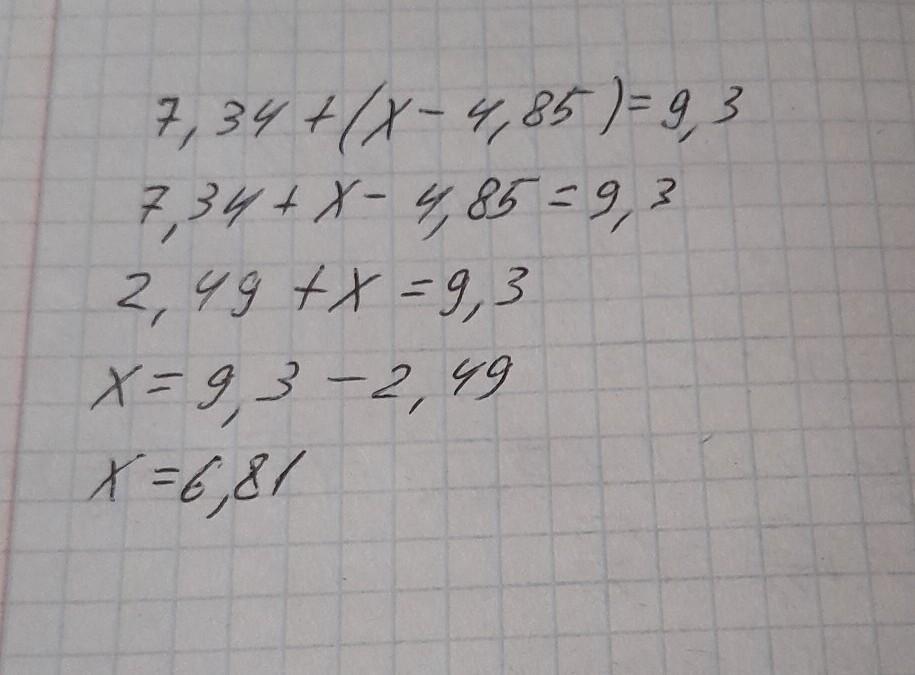 7,34 + (x - 4,85) = 9,3
7,34 + x - 4,85 = 9,3
2,49 + x = 9,3
x = 9,3 - 2,49
x = 6,81